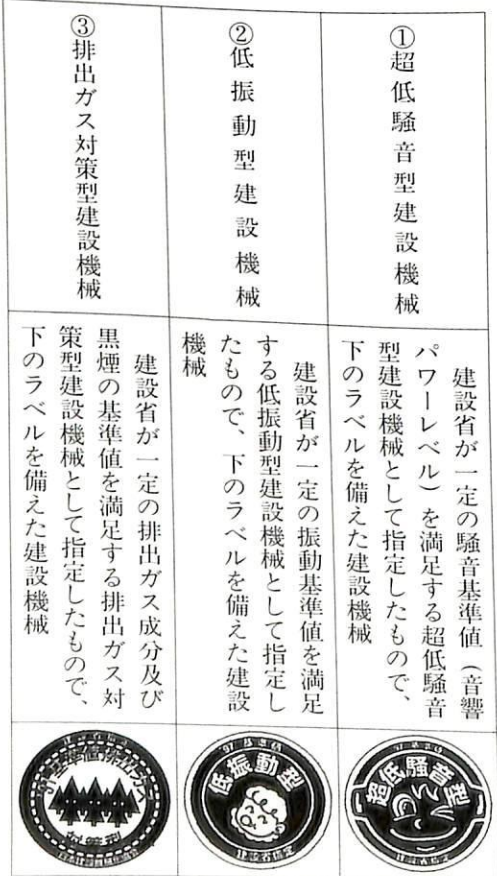 ①超低騒音型建設機械
建設省が一定の騒音基準値（音響
パワーレベル）を満足する超低騒音
型建設機械として指定したもので、
下のラベルを備えた建設機械
超低騒音型
②低振動型建設機械
建設省が一定の振動基準値を満足
する低振動型建設機械として指定し
たもので、下のラベルを備えた建設
機械
低振動型
③排出ガス対策型建設機械
建設省が一定の排出ガス成分及び
黒煙の基準値を満足する排出ガス対
策型建設機械として指定したもので、
下のラベルを備えた建設機械
対策型